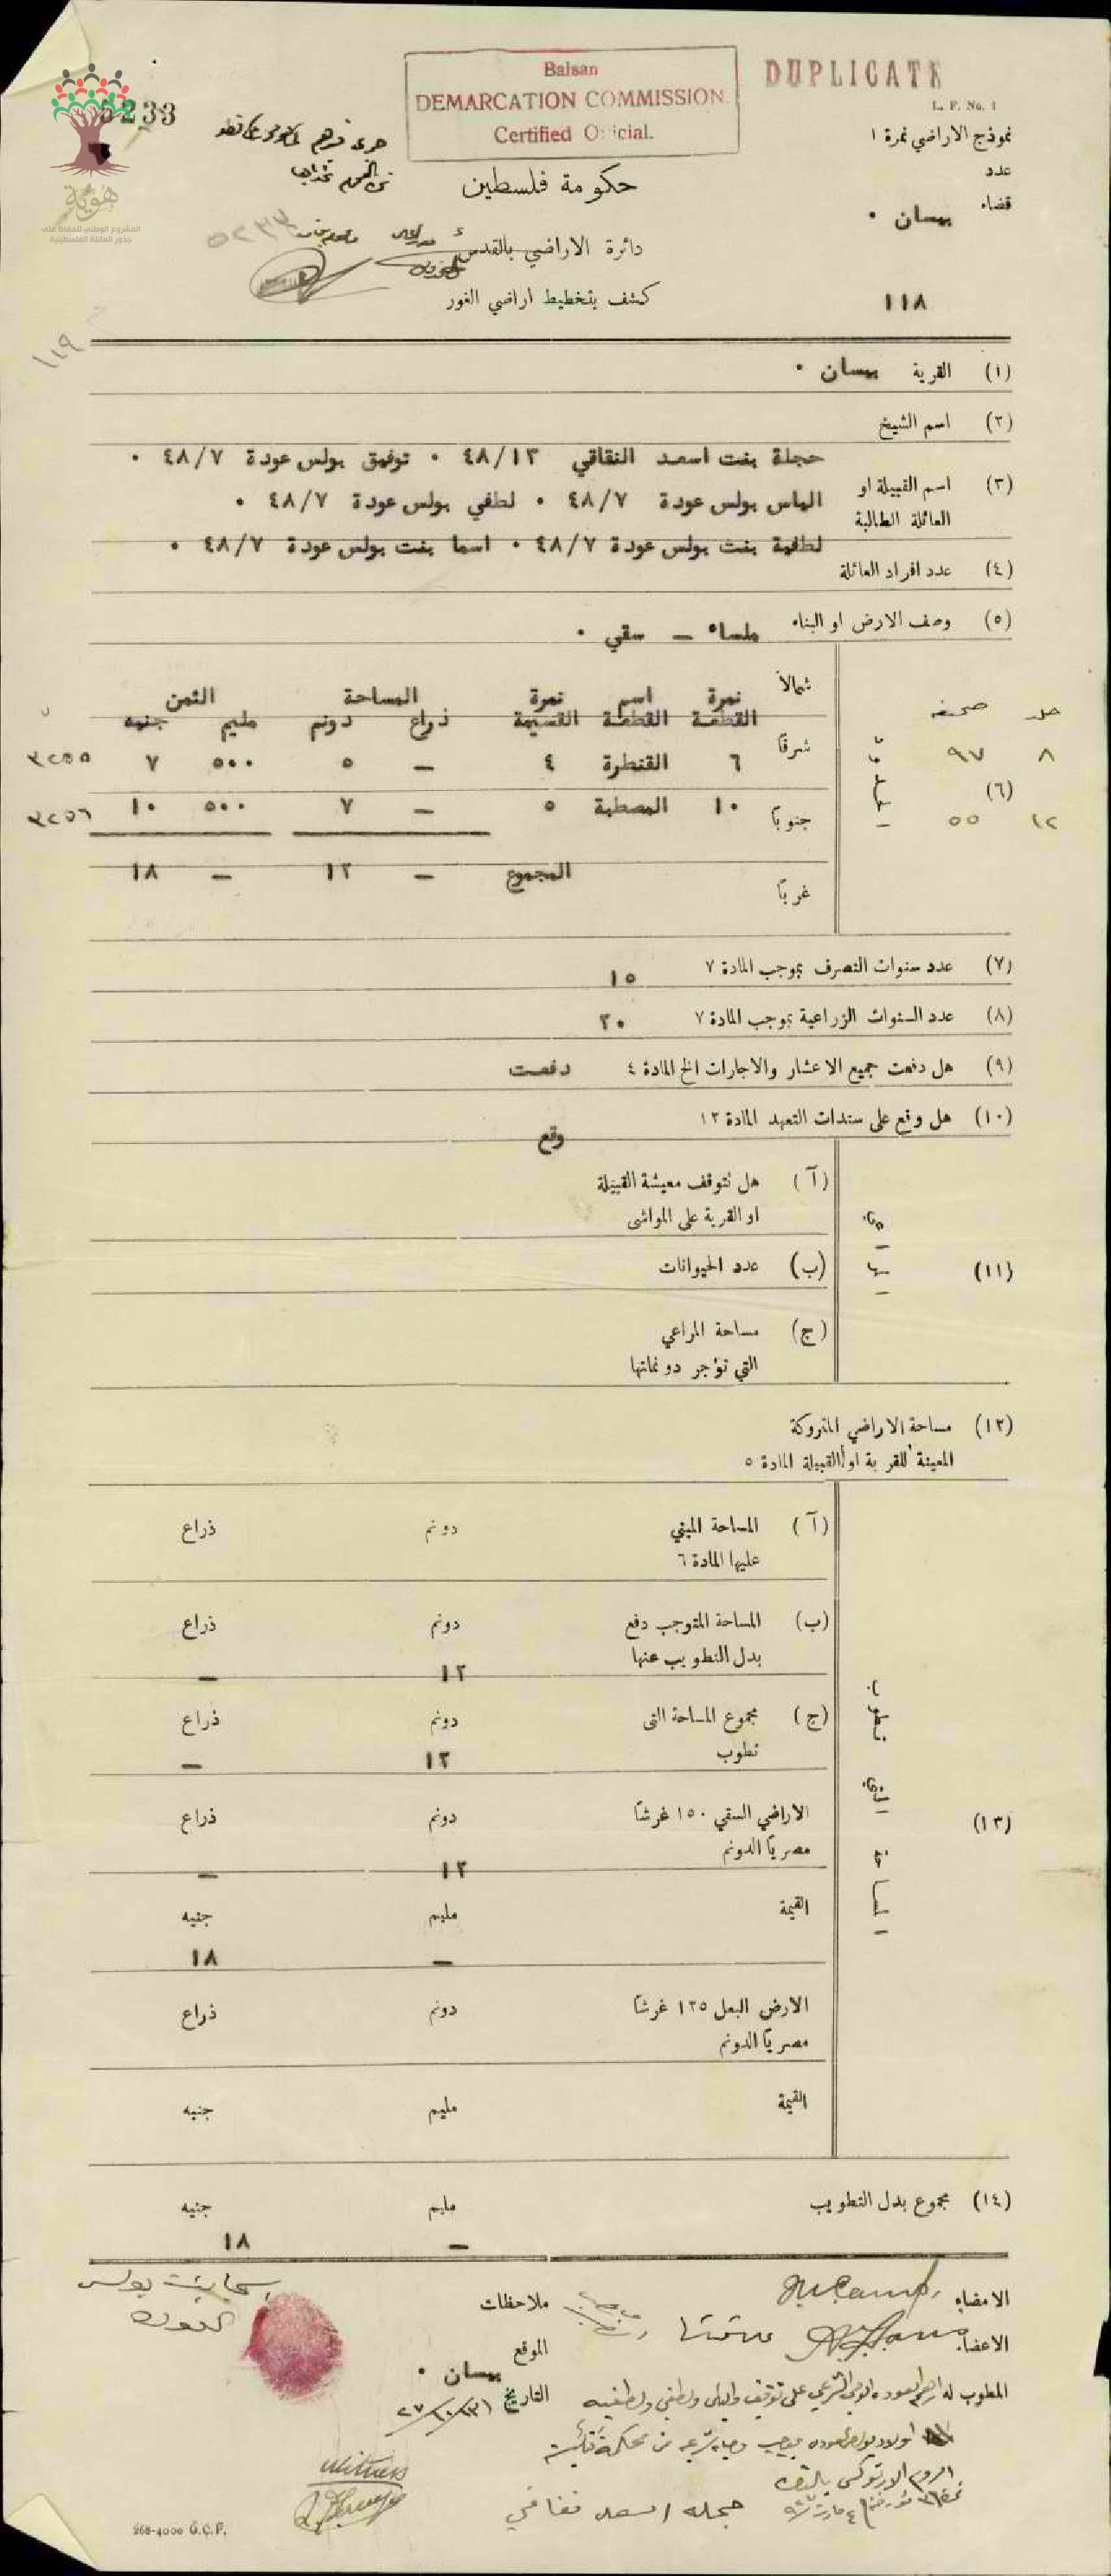 Baisan
DEMARCATION COMMISSION.
Certified Official.
DUPLICATE
L. F. No. 1
5233
هوية
المشروع الوطني للحفاظ على
جذور العائلة الفلسطينية
نموذج الاراضي نمرة ١
عدد
قضاء بيسان ٠
حكومة فلسطين
٥٢٣٣
دائرة الاراضي بالقدس
كشف بتخطيط اراضي الغور
١١٨
١١٩
(١) القرية بيسان ٠
(٢) اسم الشيخ
حجلة بنت اسعد النقاقي ٤٨/١٣ ٠ توفيق بولس عودة ٤٨/٧ ٠
(٣) اسم القبيلة او
العائلة الطالبة
الياس بولس عودة ٤٨/٧ ٠ لطفي بولس عودة ٤٨/٧ ٠
لطفية بنت بولس عودة ٤٨/٧ ٠ اسما بنت بولس عودة ٤٨/٧ ٠
(٤) عدد افراد العائلة
(٥) وصف الارض او البناء ملساء – سقي ٠
شمالاً
نمرة القطعة اسم القطعة نمرة القسيمة المساحة الثمن
ذراع دونم مليم جنيه
جلد صحيفه
شرقاً
٨ ٩٧ ٦ القنطرة ٤ – ٥ ٥٠٠ ٧ ٣٢٥٥
(٦)
١٢ ٥٥ جنوباً ١٠ المصطبة ٥ – ٧ ٥٠٠ ١٠ ٣٢٥٦
المجموع – ١٢ – ١٨
غرباً
(٧) عدد سنوات التصرف بموجب المادة ٧ ١٥
(٨) عدد السنوات الزراعية بموجب المادة ٧ ٢٠
(٩) هل دفعت جميع الاعشار والاجارات الخ المادة ٤ دفعت
(١٠) هل وقع على سندات التعهد المادة ١٢ وقع
(١١)
(آ) هل تتوقف معيشة القبيلة
او القرية على المواشى
(ب) عدد الحيوانات
(ج) مساحة المراعي
التي تؤجر دونماتها
(١٢) مساحة الاراضي المتروكة
المعينة للقرية او القبيلة المادة ٥
(١٣)
(آ) المساحة المبني دونم ذراع
عليها المادة ٦
(ب) المساحة المتوجب دفع دونم ذراع
بدل التطويب عنها ١٢ –
(ج) مجموع المساحة التى دونم ذراع
تطوب ١٢ –
الاراضي السقي ١٥٠ غرشاً دونم ذراع
مصرياً الدونم ١٢ –
القيمة مليم جنيه
– ١٨
الارض البعل ١٢٥ غرشاً دونم ذراع
مصرياً الدونم
القيمة مليم جنيه
(١٤) مجموع بدل التطويب مليم جنيه
– ١٨
الامضاء
ملاحظات
الاعضاء
الموقع بيسان ٠
المطوب له
التاريخ
witness
حجله اسعد نقاقي
268-4000 G.C.P.